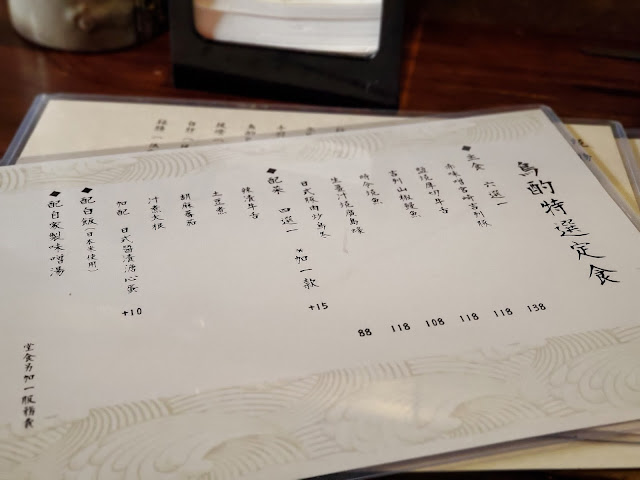 鳥酌特選定食
◆主食 六選一
赤味噌宮崎吉列豚 138
鹽燒厚切牛舌 118
吉列山椒鰻魚 118
時令燒魚 108
生薑汁燒廣島蠔 118
日式豚肉炒烏冬 88
◆配菜 四選一 *加一款 +15
辣漬牛舌
土豆煮
胡麻蕃茄
汁煮大根
加配 日式醬漬溏心蛋 +10
◆配白飯(日本米使用)
◆配自家製味噌湯
堂食另加一服務費